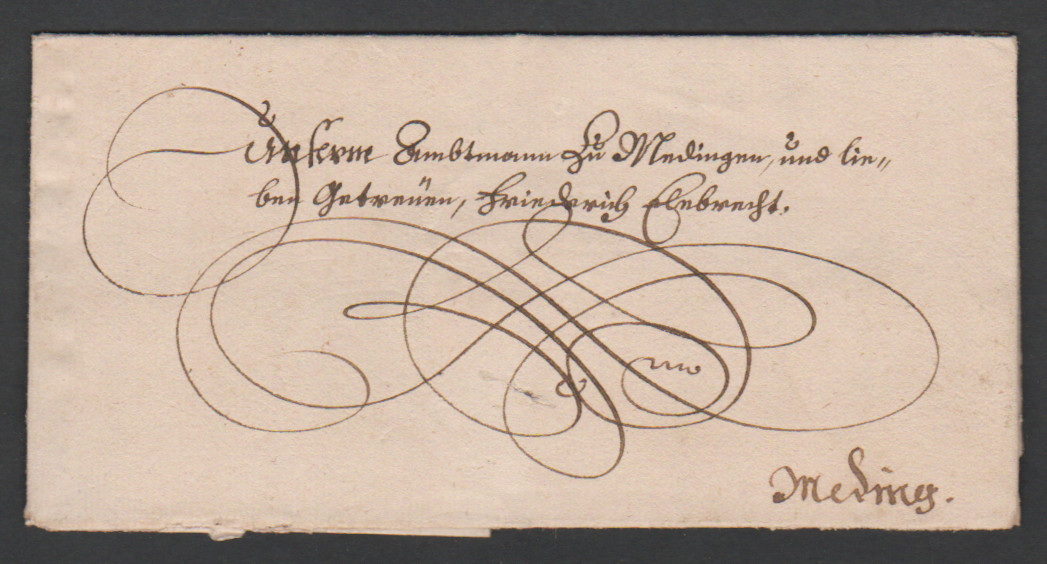 Unserm Ambtmann Zu Medingen, und lie„
ben Getreüen, Friederich Elebrecht.
Meding.